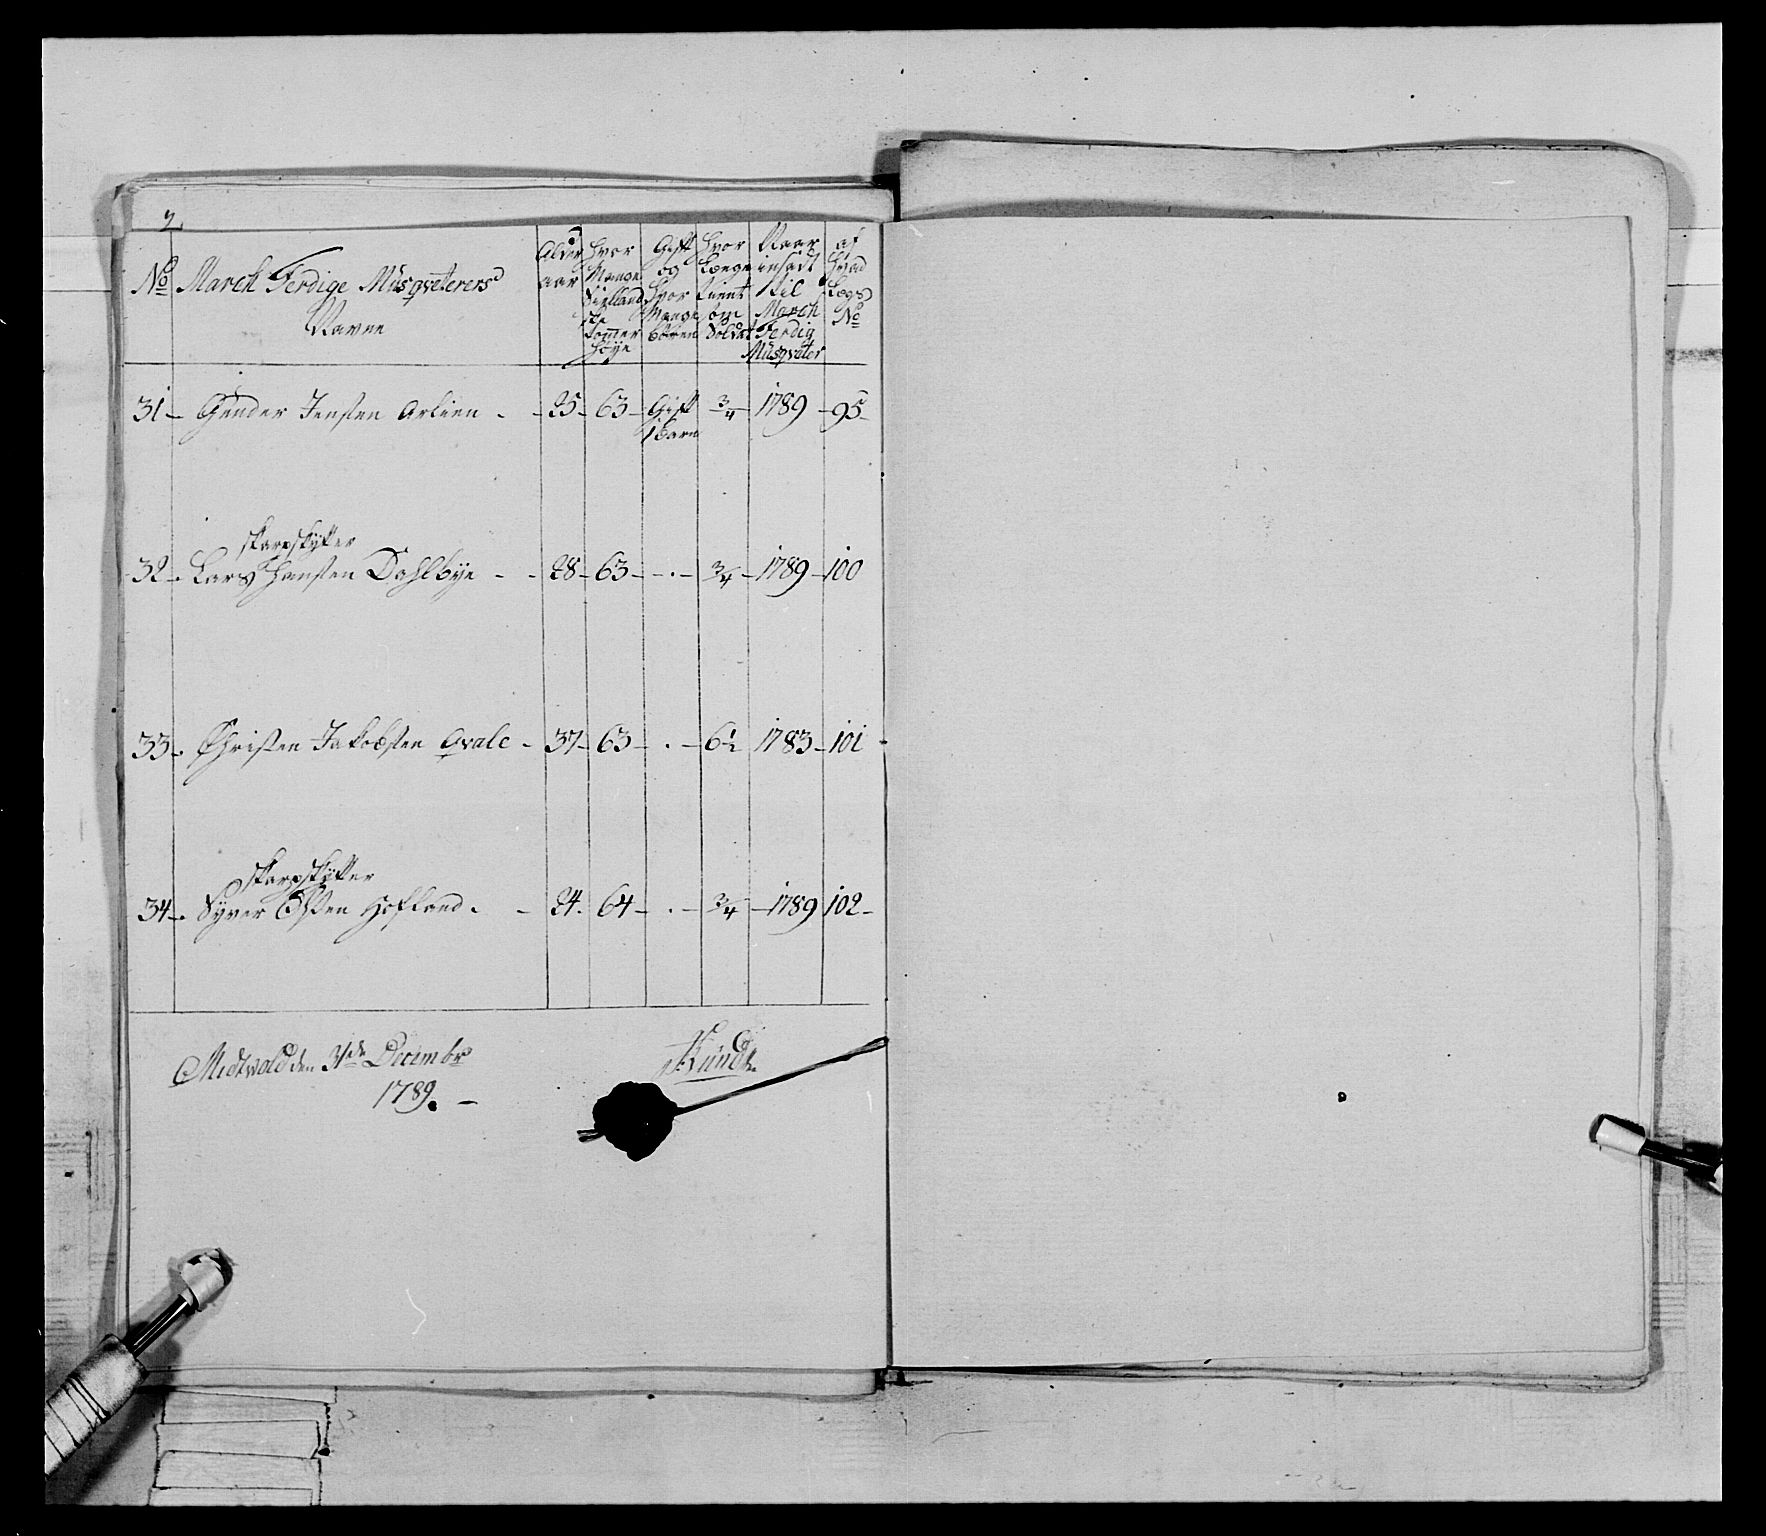 2
No March Ferdige Musqveterers Navne | Alder aar | Hvor Mange Siellandske Tommer Høye | Gift og Hvor Mange børen | Hvor Længe tient som Soldat | Naar indsadt til March Ferdig Musqveter | af Hvad Lægs No
31 - Gunder Jensen Arlien - - 25 - 63 - Gift 1 barn - 3/4 - 1789 - 95 -
skarpskytter
32 - Lars Hansen Dahlbye - - 28 - 63 - - . - 3/4 - 1789 - 100
33 - Christen Jakobsen Qvale - 37 - 63 - . - 6 1/2 1783 - 101
skarpskytter
34 - Syver Olsen Hofland - - 24 . 64 - . - 3/4 - 1789 102 -
Midtvold den 31de Decembr
1789. -